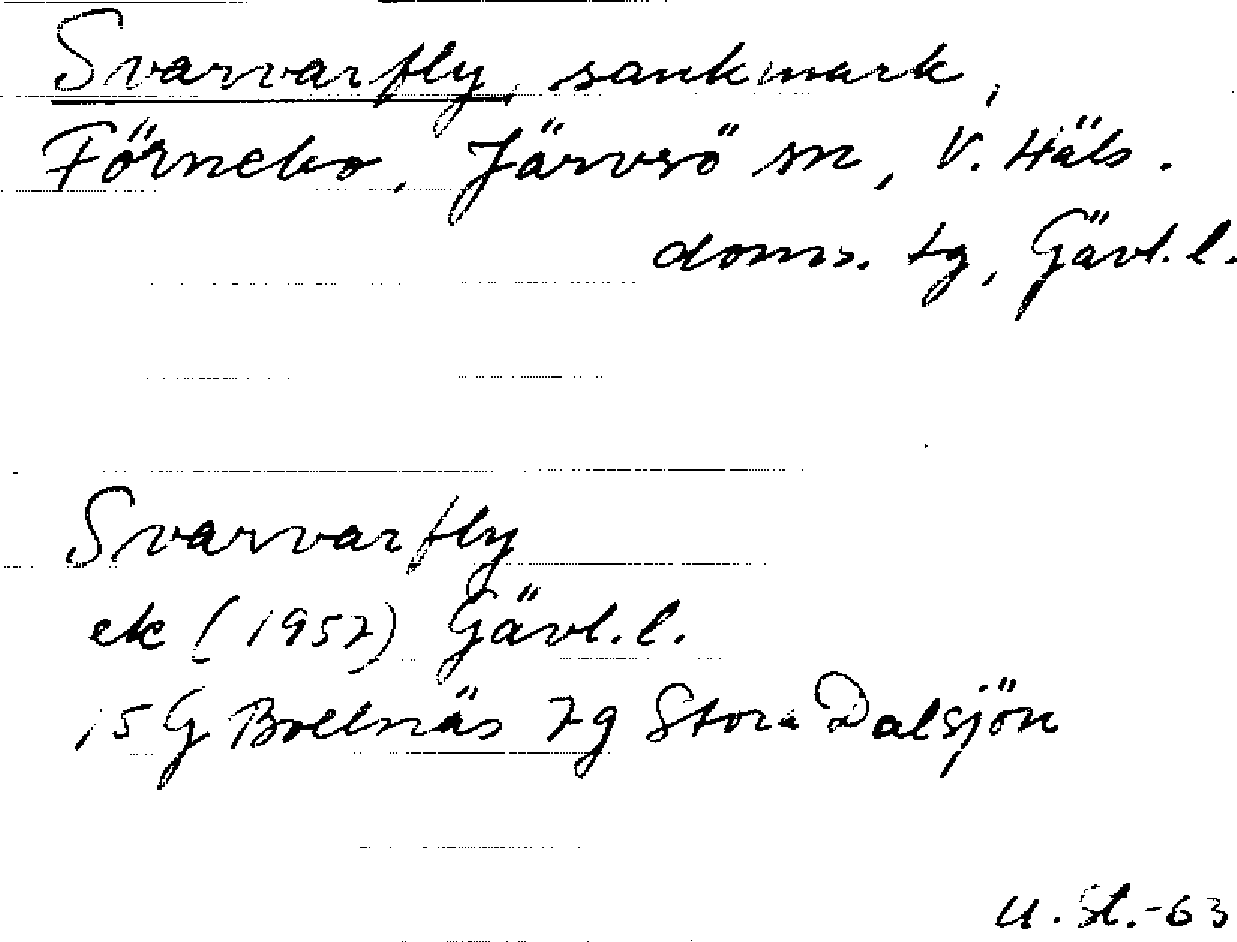 Svarvarfly, sankmark,
Förnebo, Järvsö sn, V. Häls.
doms. tg, Gävl. l.
Svarvarfly
ek (1957) Gävl. l.
15 G Bollnäs 7g Stora Dalsjön
U. St.-63